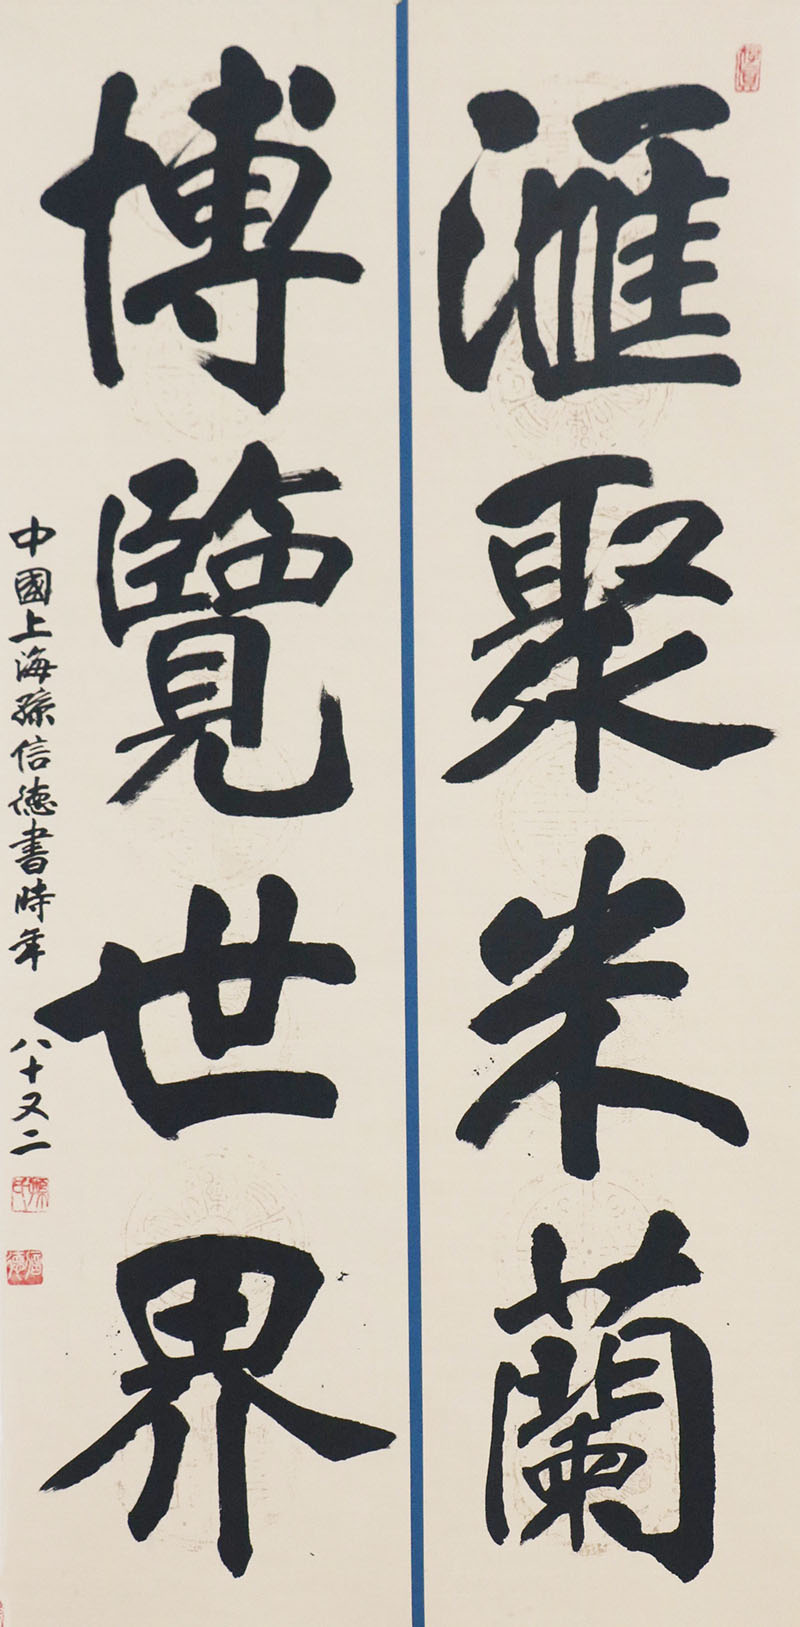 滙聚米蘭
博覽世界
中國上海孫信德書時年八十又二